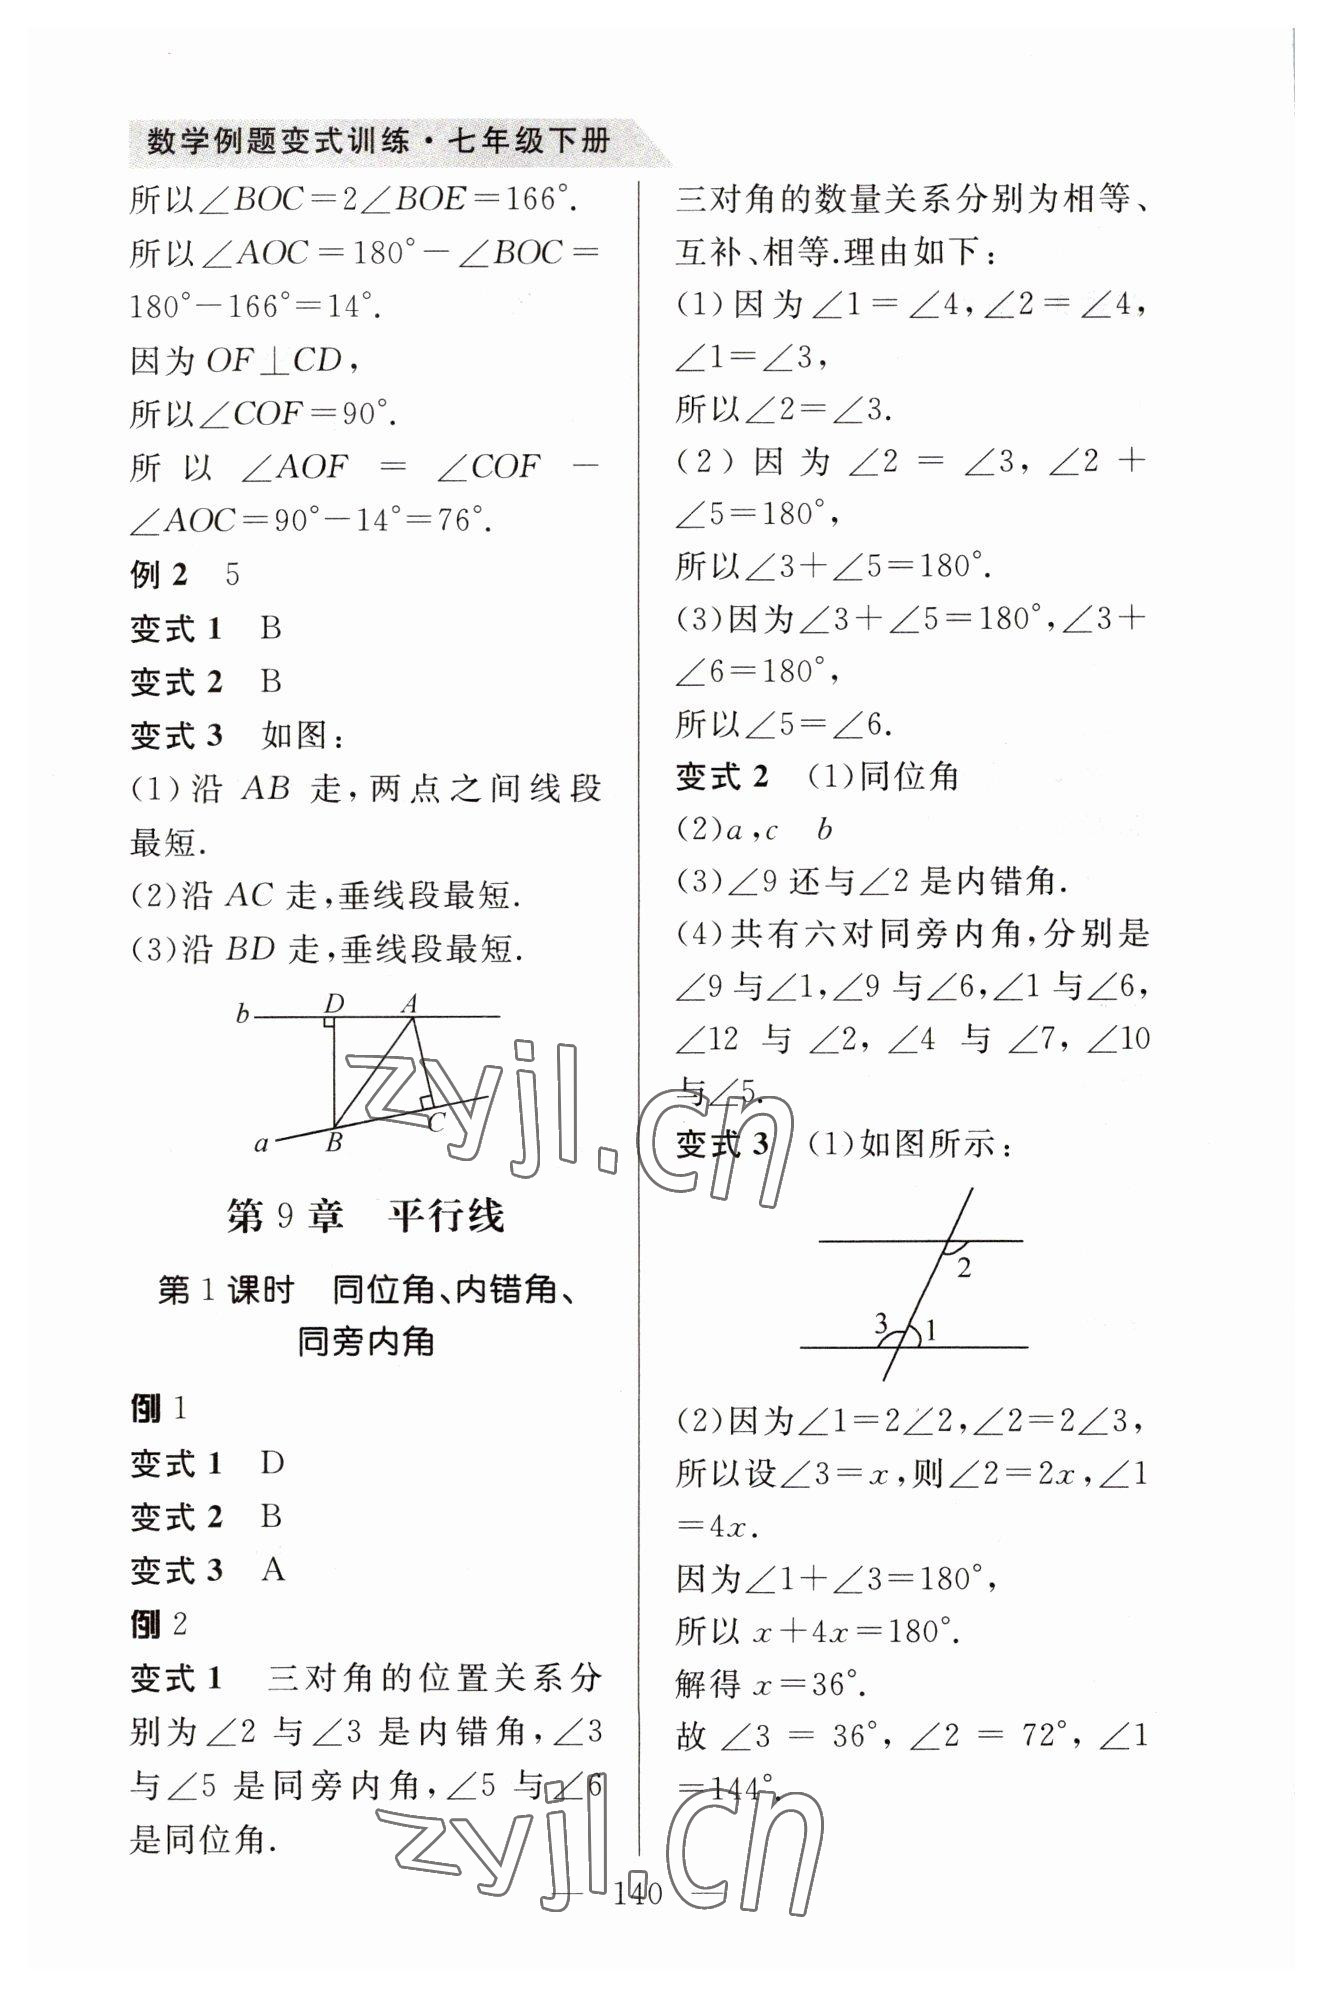 数学例题变式训练·七年级下册
所以∠BOC=2∠BOE=166°.
所以∠AOC=180°-∠BOC=
180°-166°=14°.
因为OF⊥CD,
所以∠COF=90°.
所以 ∠AOF = ∠COF -
∠AOC=90°-14°=76°.
例2 5
变式1 B
变式2 B
变式3 如图:
(1)沿 AB 走,两点之间线段
最短.
(2)沿 AC 走,垂线段最短.
(3)沿 BD 走,垂线段最短.
b D A
a B C
第9章 平行线
第1课时 同位角、内错角、
同旁内角
例1
变式1 D
变式2 B
变式3 A
例2
变式1 三对角的位置关系分
别为∠2与∠3是内错角,∠3
与∠5是同旁内角,∠5与∠6
是同位角.
三对角的数量关系分别为相等、
互补、相等.理由如下:
(1)因为∠1=∠4,∠2=∠4,
∠1=∠3,
所以∠2=∠3.
(2)因为∠2=∠3,∠2+
∠5=180°,
所以∠3+∠5=180°.
(3)因为∠3+∠5=180°,∠3+
∠6=180°,
所以∠5=∠6.
变式2 (1)同位角
(2)a,c b
(3)∠9还与∠2是内错角.
(4)共有六对同旁内角,分别是
∠9与∠1,∠9与∠6,∠1与∠6,
∠12 与 ∠2,∠4 与 ∠7,∠10
与∠5.
变式3 (1)如图所示:
2
3 1
(2)因为∠1=2∠2,∠2=2∠3,
所以设∠3=x,则∠2=2x,∠1
=4x.
因为∠1+∠3=180°,
所以 x+4x=180°.
解得 x=36°.
故 ∠3 = 36°,∠2 = 72°,∠1
=144°.
140
zyjl.cn
zyjl.cn